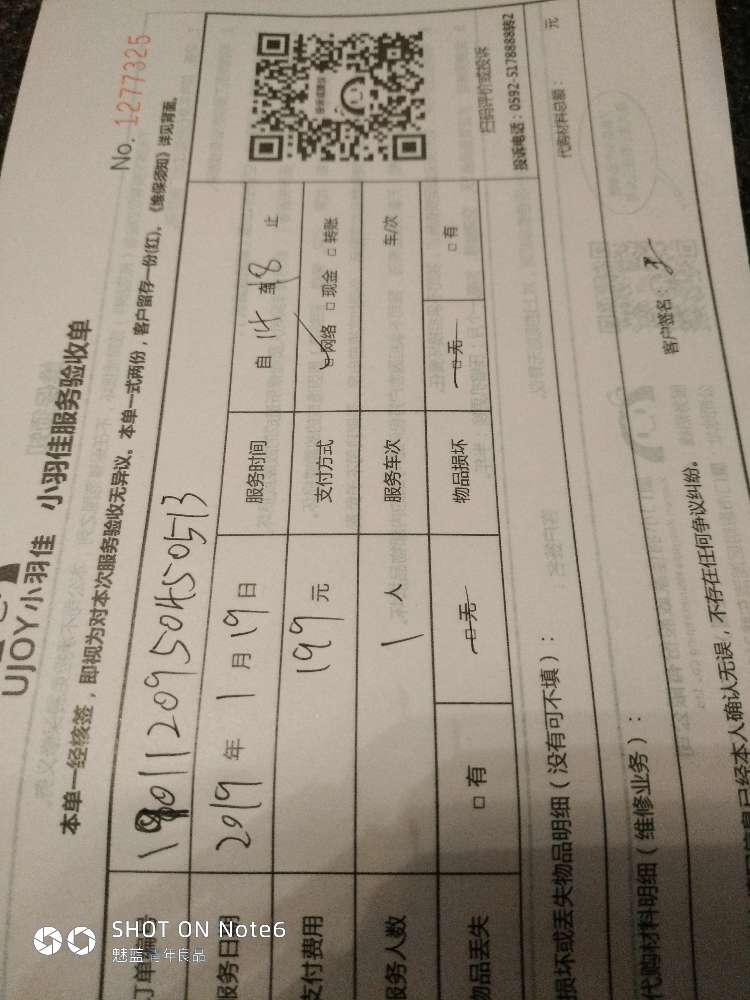 UJOY小羽佳 小羽佳服务验收单
No. 1277325
本单一经核签，即视为对本次服务验收无异议。本单一式两份，客户留存一份(红)。《维保须知》详见背面。
订单编号
服务日期 2019 年 1 月 19 日 服务时间 自 14 至 18 止
支付费用 199 元 支付方式 网络 □ 现金 □ 转账
服务人数 1 人 服务车次 车/次
物品丢失 □ 有 □ 无 物品损坏 □ 无 □ 有
扫码评价或投诉
投诉电话：0592-5178888转2
损坏或丢失物品明细（没有可不填）：
代购材料明细（维修业务）：
代购材料总额： 元
信息已经本人确认无误，不存在任何争议纠纷。
客户签名：
SHOT ON Note6
魅蓝 青年良品